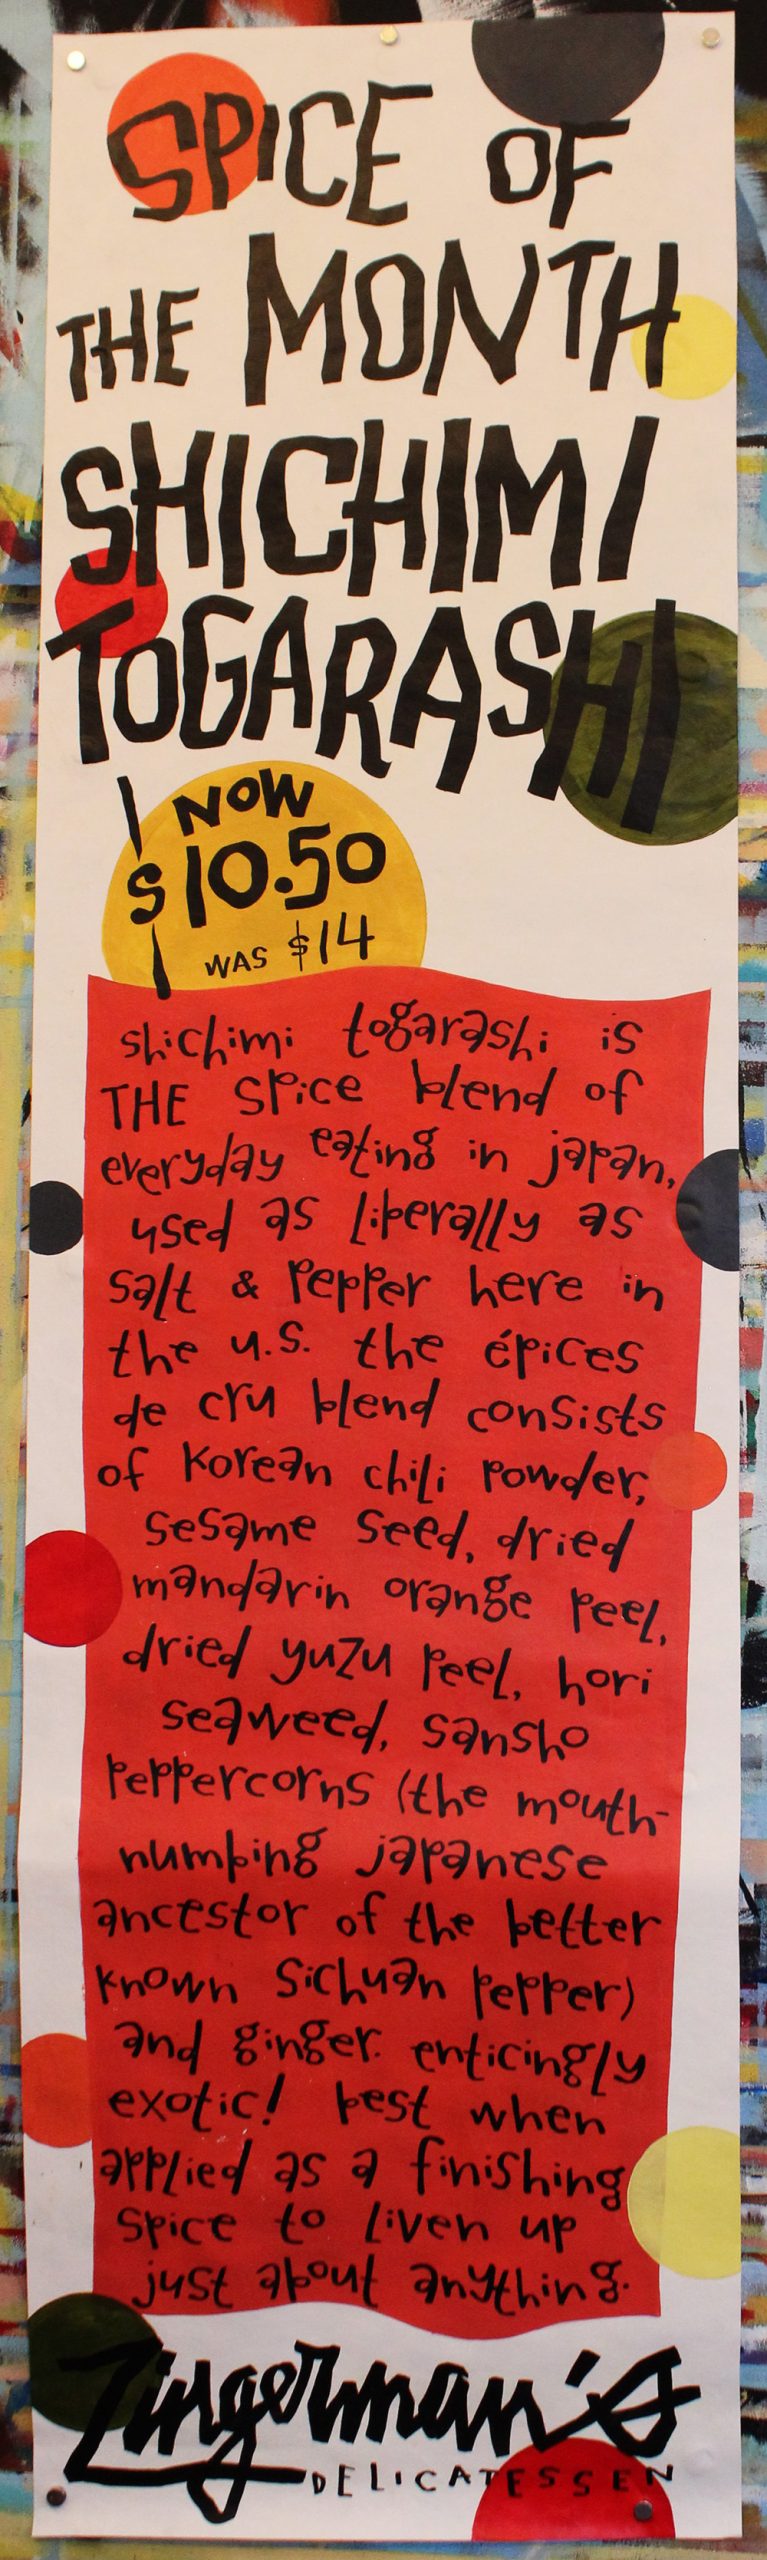 SPICE OF
THE MONTH
SHICHIMI
TOGARASHI
NOW
$10.50
WAS $14
shichimi togarashi is
THE spice blend of
everyday eating in japan,
used as liberally as
salt & pepper here in
the u.s. the épices
de cru blend consists
of korean chili powder,
sesame seed, dried
mandarin orange peel,
dried yuzu peel, hori
seaweed, sansho
peppercorns (the mouth-
numbing japanese
ancestor of the better
known sichuan pepper)
and ginger. enticingly
exotic! best when
applied as a finishing
spice to liven up
just about anything.
Zingerman's
DELICATESSEN